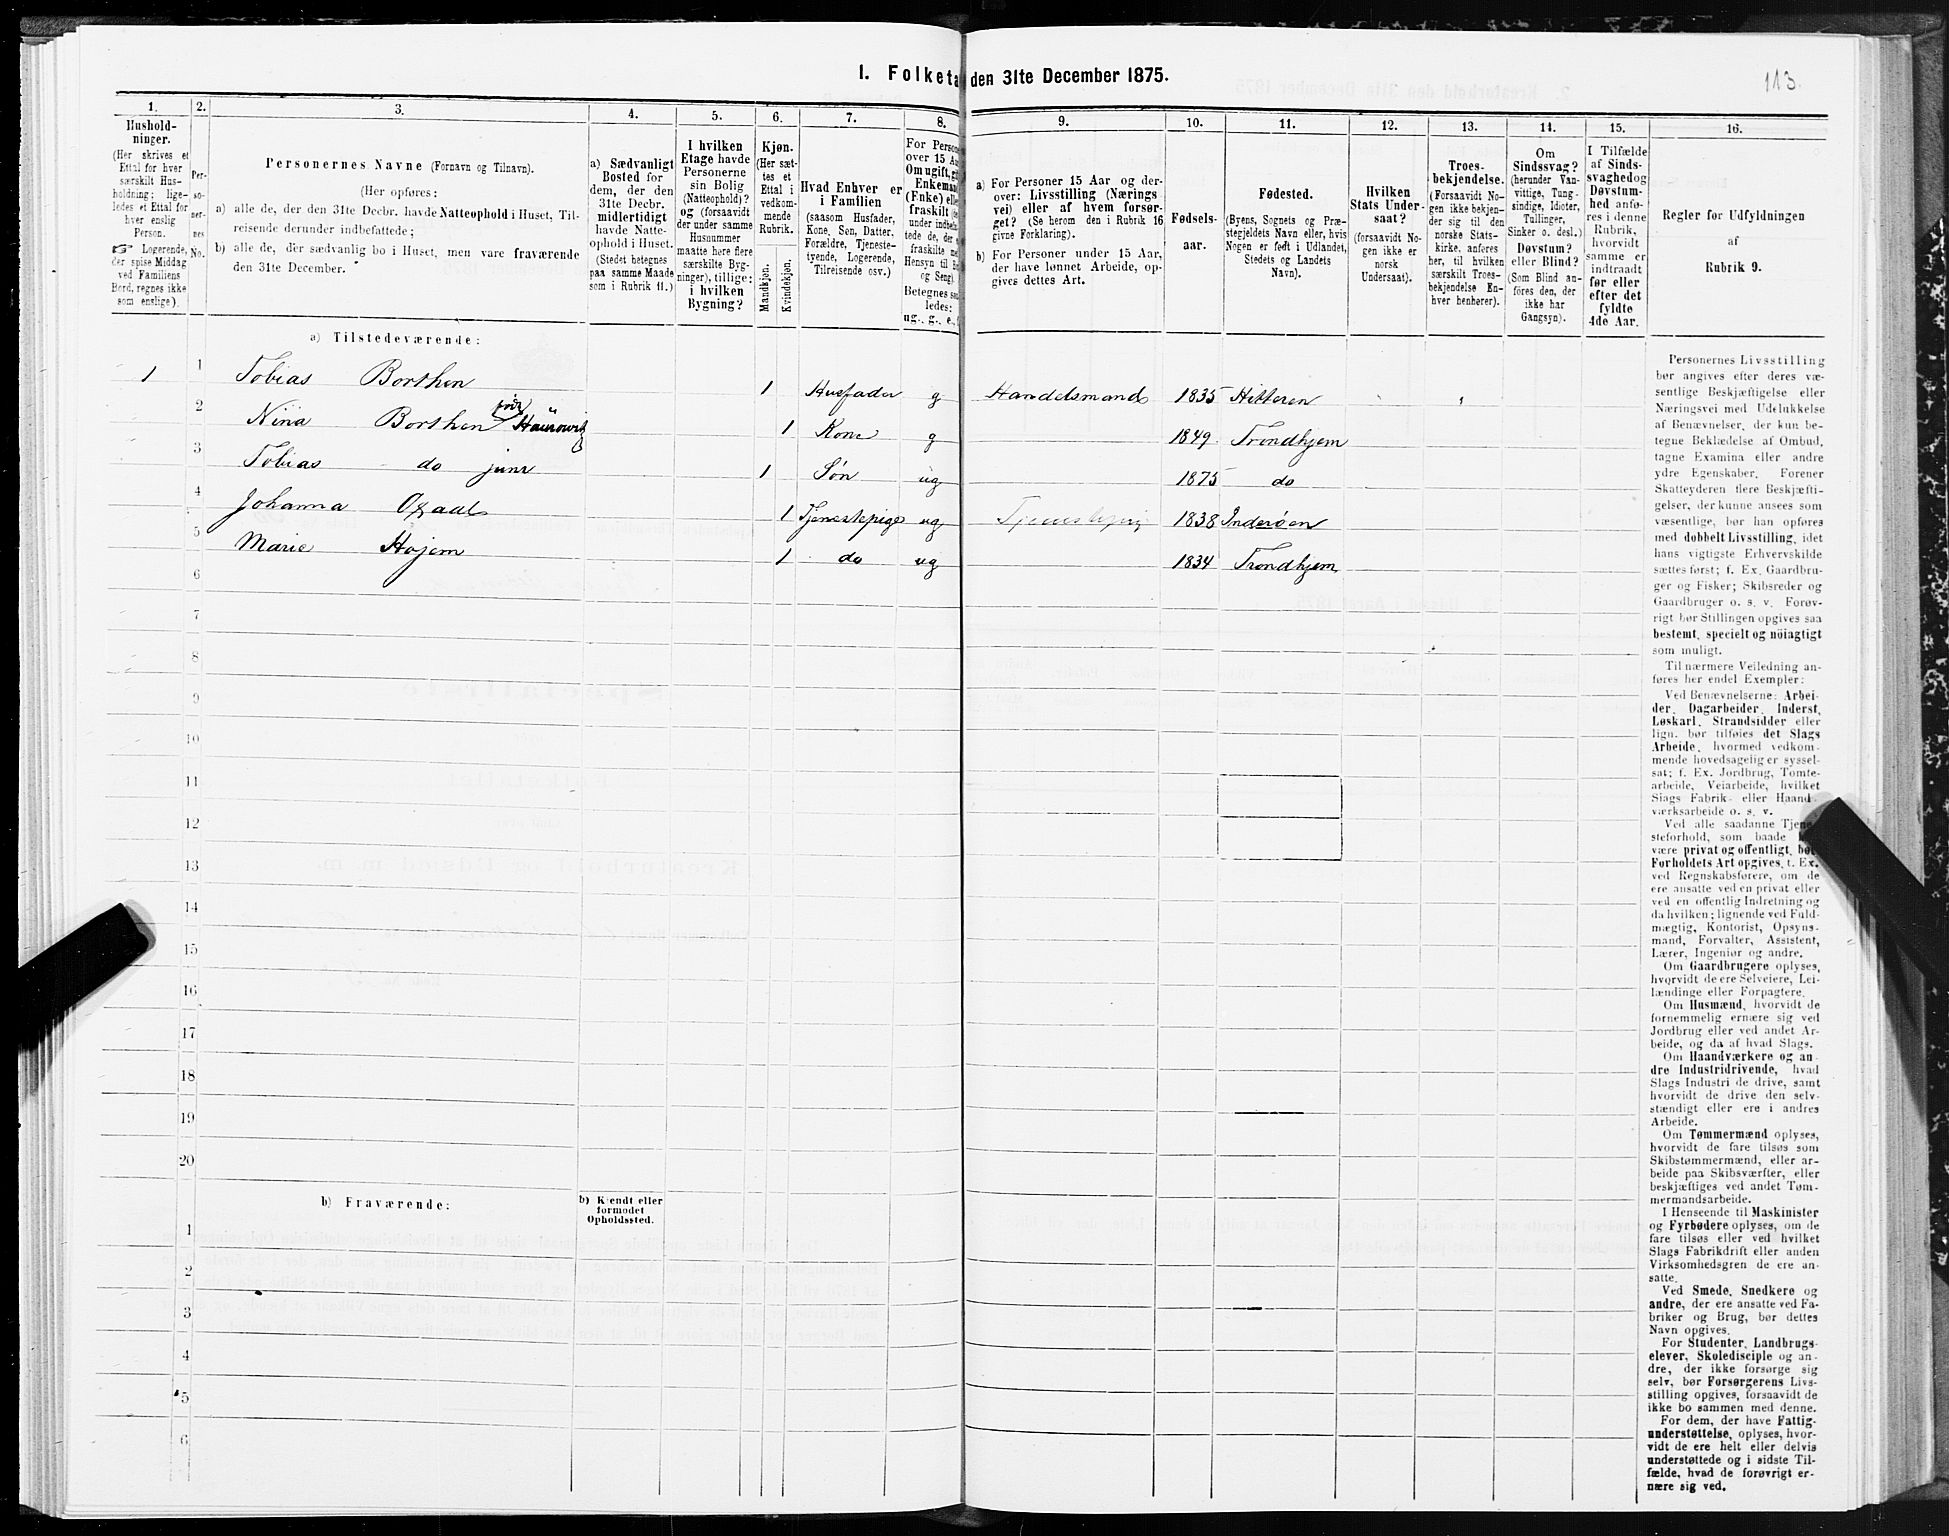 113.
1. Folketa den 31te December 1875.
1. 2. 3. 4. 5. 6. 7. 8. 9. 10. 11. 12. 13. 14. 15. 16.
Hushold-
ninger.
(Her skrives et
Ettal for hver
særskilt Hus-
holdning; lige-
ledes et Ettal for
hver enslig
Person.
☞ Logerende,
der spise Middag
ved Familiens
Bord, regnes ikke
som enslige).
Per-
so-
ner-
nes
No.
Personernes Navne (Fornavn og Tilnavn).
(Her opføres:
a) alle de, der den 31te Decbr. havde Natteophold i Huset, Til-
reisende derunder indbefattede;
b) alle de, der sædvanlig bo i Huset, men vare fraværende
den 31te December.
a) Sædvanligt
Bosted for
dem, der den
31te Decbr.
midlertidigt
havde Natte-
ophold i Huset.
(Stedet betegnes
paa samme Maade
som i Rubrik 11.)
I hvilken
Etage havde
Personerne
sin Bolig
(Natteophold)?
og (forsaavidt
der under samme
Husnummer
maatte høre flere
særskilte Byg-
ninger), tillige:
i hvilken
Bygning?
Kjøn.
(Her sæt-
tes et
Ettal i
vedkom-
mende
Rubrik.
Mandkjøn.
Kvindekjøn.
Hvad Enhver er
i Familien
(saasom Husfader,
Kone, Søn, Datter,
Forældre, Tjeneste-
tyende, Logerende,
Tilreisende osv.)
For Persone
over 15 Aa
Om ugift, g
Enkeman
(Enke) elle
fraskilt
under indbe
tede de, der
fraskilte
Hensyn til B
og Seng)
Betegnes sa
ledes:
ug., g., e.,
a) For Personer 15 Aar og der-
over: Livsstilling (Nærings
vei) eller af hvem forsør-
get? (Se herom den i Rubrik 16
givne Forklaring).
b) For Personer under 15 Aar,
der have lønnet Arbeide, op-
gives dettes Art.
Fødsels-
aar.
Fødested.
(Byens, Sognets og Præ-
stegjeldets Navn eller, hvis
Nogen er født i Udlandet,
Stedets og Landets
Navn).
Hvilken
Stats Under-
saat?
(forsaavidt No-
gen ikke er
norsk
Undersaat).
Troes-
bekjendelse.
(Forsaavidt No-
gen ikke bekjen-
der sig til den
norske Stats-
kirke, anføres
her, til hvilken
særskilt Troes-
bekjendelse En-
hver henhører).
Om
Sindssvag?
(herunder Van-
vittige, Tung-
sindige, Idioter,
Tullinger,
Sinker o. desl.)
Døvstum?
eller Blind?
(Som Blind an-
føres den, der
ikke har
Gangsyn).
I Tilfælde
af Sinds-
svaghed og
Døvstum-
hed anfø-
res i denne
Rubrik,
hvorvidt
samme er
indtraadt
før eller
efter det
fyldte
4de Aar.
Regler før Udfyldningen
af
Rubrik 9.
a) Tilstedeværende:
1 1 Tobias Borthen 1 Husfader g Handelsmand 1835 Hitteren
2 Nina Borthen Haurowitz 1 Kone g 1849 Trondhjem
3 Tobias do junr 1 Søn ug 1875 do
4 Johanna Oxaal 1 Tjenestepige ug Tjenestepige 1838 Inderøen
5 Marie Højem 1 do ug 1834 Trondhjem
6
7
8
9
10
11
12
13
14
15
16
17
18
19
20
b) Fraværende:
b) Kjendt eller
formodet
Opholdssted.
1
2
3
4
5
6
Personernes Livsstilling
bør angives efter deres væ-
sentlige Beskjæftigelse eller
Næringsvei med Udelukkelse
af Benævnelser, der kun be-
tegne Beklædelse af Ombud,
tagne Examina eller andre
ydre Egenskaber. Forener
Skatteyderen flere Beskjæfti-
gelser, der kunne ansees som
væsentlige, bør han opføres
med dobbelt Livsstilling, idet
hans vigtigste Erhvervskilde
sættes først; f. Ex. Gaardbru-
ger og Fisker; Skibsreder og
Gaardbruger o. s. v. Forøv-
rigt bør Stillingen opgives saa
bestemt, specielt og nöiagtigt
som muligt.
Til nærmere Veiledning an-
føres her endel Exempler:
Ved Benævnelserne: Arbei-
der, Dagarbeider, Inderst,
Løskarl, Strandsidder eller
lign. bør tilføies det Slags
Arbeide, hvormed vedkom-
mende hovedsagelig er syssel-
sat; f. Ex. Jordbrug, Tomte-
arbeide, Veiarbeide, hvilket
Slags Fabrik- eller Haand-
værksarbeide o. s. v.
Ved alle saadanne Tjene-
steforhold, som baade
være privat og offentligt, bør
Forholdets Art opgives, t. Ex.
ved Regnskabsførere, om de
ere ansatte ved en privat eller
ved en offentlig Indretning og
da hvilken; lignende ved Fuld-
mægtig, Kontorist, Opsyns-
mand, Forvalter, Assistent,
Lærer, Ingeniør og andre.
Om Gaardbrugere oplyses,
hvorvidt de ere Selveiere, Lei-
lændinge eller Forpagtere.
Om Husmænd, hvorvidt de
fornemmelig ernære sig ved
Jordbrug eller ved andet Ar-
beide, og da af hvad Slags.
Om Haandværkere og an-
dre Industridrivende, hvad
Slags Industri de drive, samt
hvorvidt de drive den selv-
stændigt eller ere i andres
Arbeide.
Om Tømmermænd oplyses,
hvorvidt de fare tilsøs som
Skibstømmermænd, eller ar-
beide paa Skibsværfter, eller
beskjæftiges ved andet Tøm-
mermandsarbeide.
I Henseende til Maskinister
og Fyrbødere oplyses, om de
fare tilsøs eller ved hvilket
Slags Fabrikdrift eller anden
Virksomhedsgren de ere an-
satte.
Ved Smede, Snedkere og
andre, der ere ansatte ved Fa-
briker og Brug, bør dettes
Navn opgives.
For Studenter, Landbrugs-
elever, Skoledisciple og an-
dre, der ikke forsørge sig
selv, bør Forsørgerens Livs-
stilling opgives, forsaavidt de
ikke bo sammen med denne.
For dem, der have Fattig-
understøttelse, oplyses, hvor-
vidt de ere helt eller delvis
understøttede og i sidste Til-
fælde, hvad de forøvrigt er-
nære sig ved.